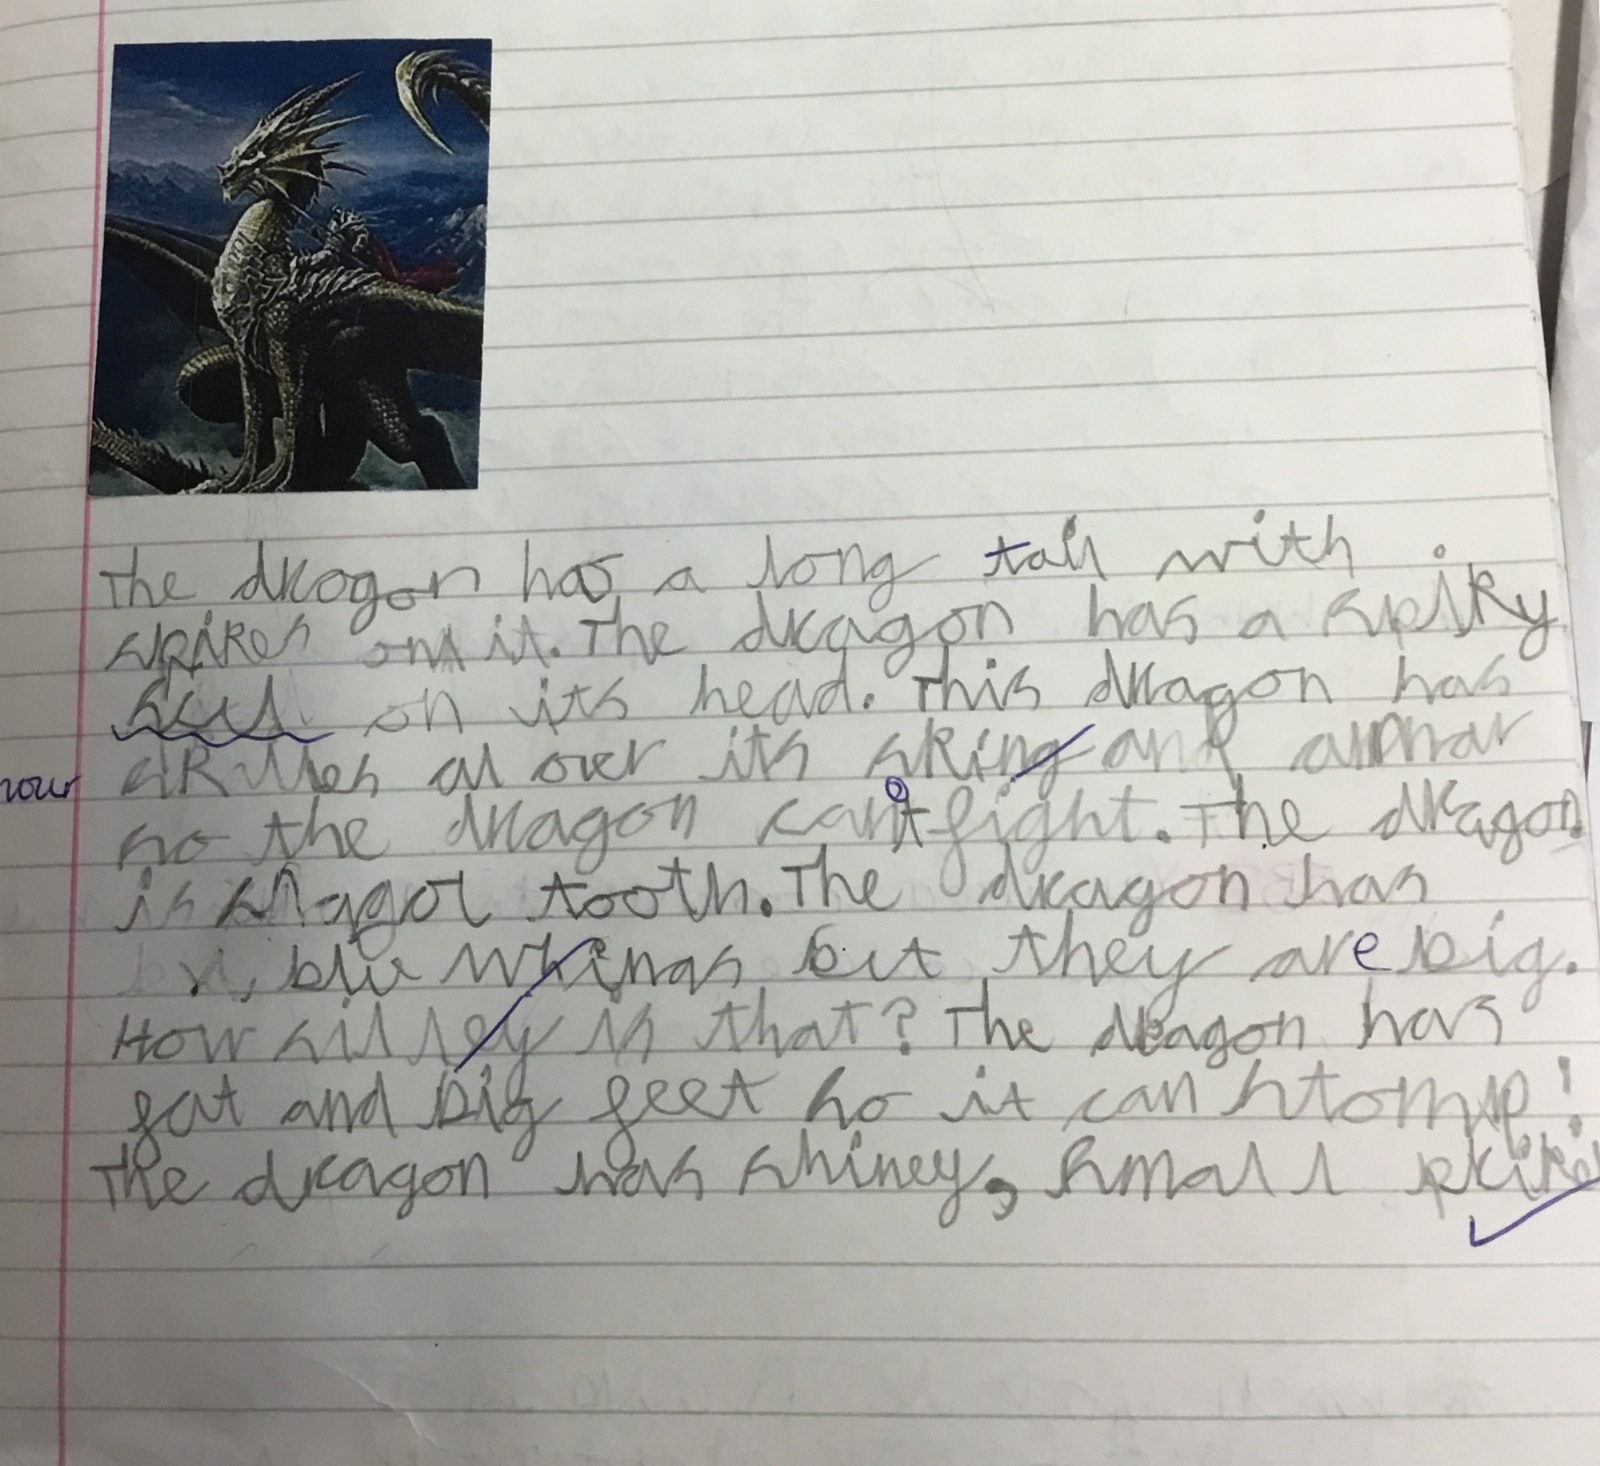 The dragon has a long tail with
spikes on it. The dragon has a spiky
on its head. This dragon has
al over its sking and armar
nour
so the dragon can't fight. The dragon
is tooth. The dragon has
blu whings but they are big.
How silley is that? The dragon has
fat and big feet so it can stomp!
The dragon has shiney, small